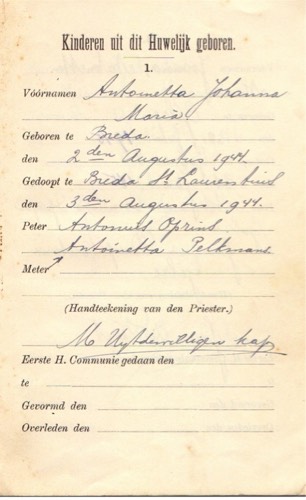 Kinderen uit dit Huwelijk geboren.
1.
Vóórnamen Antoinetta Johanna
Maria
Geboren te Breda
den 2den Augustus 1944.
Gedoopt te Breda St. Laurentius
den 3den Augustus 1944.
Peter Antonius Oprins
Antoinetta Pelkmans
Meter
(Handteekening van den Priester.)
M Uytdewilligen kap.
Eerste H. Communie gedaan den
te
Gevormd den
Overleden den